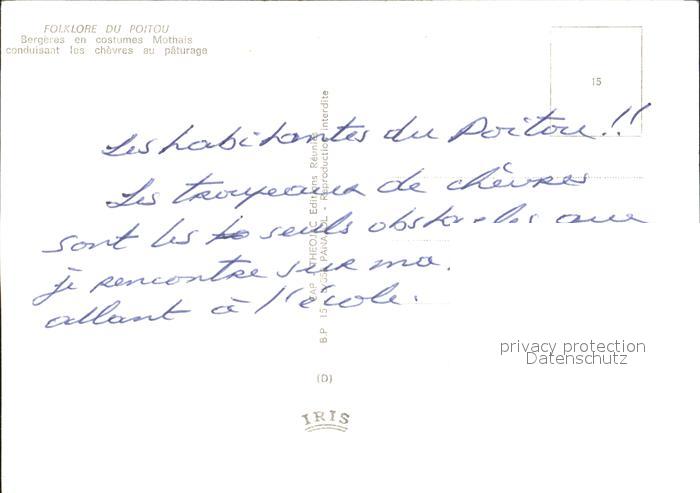 FOLKLORE DU POITOU
Bergères en costumes Mothais
conduisant les chèvres au pâturage
15
Les habitantes du Poitou!!
Les troupeaux de chèvres
sont les seuls obstacles que
je rencontre sur ma.
allant à l'école.
B.P. 15 CAP-THEOJAC Editions Réunies
PANAZOL - Reproduction interdite
privacy protection
Datenschutz
(D)
IRIS